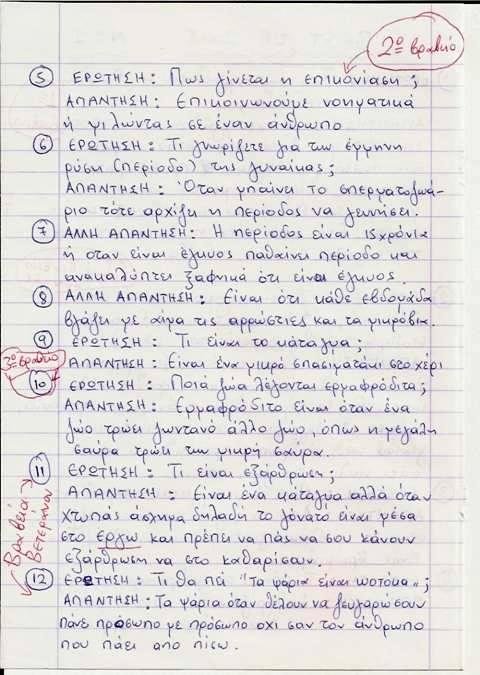 2ο βραβείο
5 ΕΡΩΤΗΣΗ: Πως γίνεται η επικονίαση;
ΑΠΑΝΤΗΣΗ: Επικοινωνούμε νοηματικά
ή μιλώντας σε έναν άνθρωπο
6 ΕΡΩΤΗΣΗ: Τι γνωρίζετε για την έμμηνη
ρύση (περίοδο) της γυναίκας;
ΑΠΑΝΤΗΣΗ: Όταν μπαίνει το σπερματοζωά-
ριο τότε αρχίζει η περίοδος να γεννήσει.
7 ΑΛΛΗ ΑΠΑΝΤΗΣΗ: Η περίοδος είναι 15χρόνια
ή οταν είναι έγκυος παθαίνει περίοδο και
ανακαλύπτει ξαφνικά ότι είναι έγκυος.
8 ΑΛΛΗ ΑΠΑΝΤΗΣΗ: Είναι ότι κάθε εβδομάδα
βγάζει με αίμα τις αρρώστιες και τα μικρόβια.
9 ΕΡΩΤΗΣΗ: Τι είναι το κάταγμα;
ΑΠΑΝΤΗΣΗ: Είναι ένα μικρό σπασιματάκι στο χέρι
3ο βραβείο
10 ΕΡΩΤΗΣΗ: Ποιά ζώα λέγονται ερμαφρόδιτα;
ΑΠΑΝΤΗΣΗ: Ερμαφρόδιτο είναι όταν ένα
ζώο τρώει ζωντανό άλλο ζώο, όπως η μεγάλη
σαύρα τρώει την μικρή σαύρα.
11 ΕΡΩΤΗΣΗ: Τι είναι εξάρθρωση;
ΑΠΑΝΤΗΣΗ: Είναι ένα κάταγμα αλλά όταν
χτυπάς άσχημα δηλαδή το γόνατό είναι μέσα
στο έργω και πρέπει να πάς να σου κάνουν
εξάρθρωση να στο καθαρίσουν.
Βραβεία Βετεράνων
12 ΕΡΩΤΗΣΗ: Τι θα πεί "Τα ψάρια είναι ωοτόκα";
ΑΠΑΝΤΗΣΗ: Τα ψάρια όταν θέλουν να ζευγαρώσουν
πάνε πρόσωπο με πρόσωπο οχι σαν τον άνθρωπο
που πάει απο πίσω.